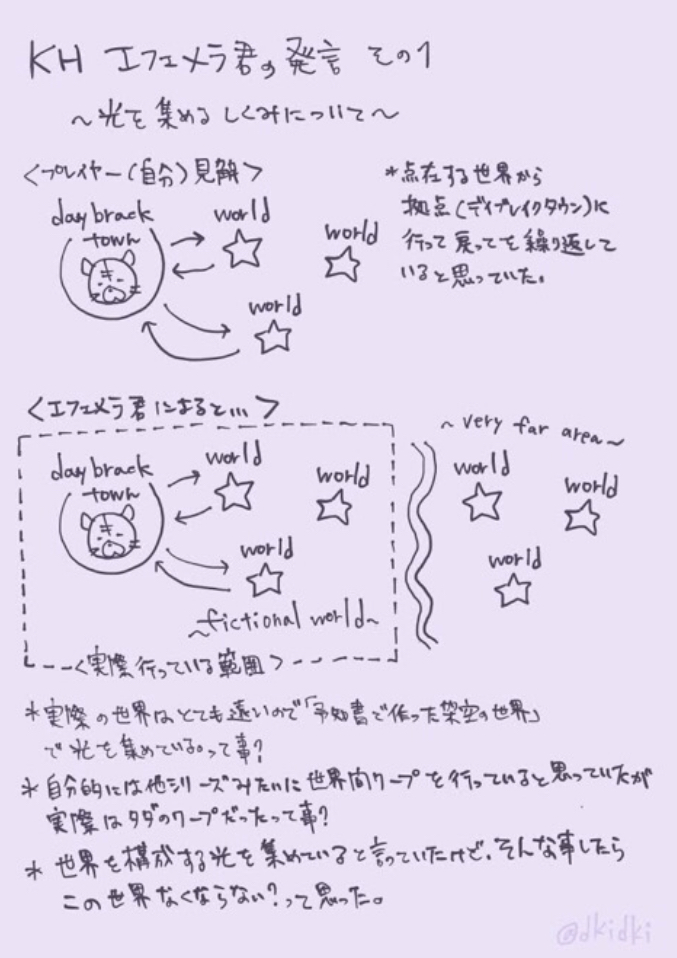 KH エフェメラ君の発言 その1
～光を集めるしくみについて～
＜プレイヤー(自分)見解＞
day brack
town
world
world
world
*点在する世界から
拠点(デイブレイクタウン)に
行って戻ってを繰り返して
いると思っていた。
＜エフェメラ君によると…＞
day brack
town
world
world
world
～fictional world～
＜実際行っている範囲＞
～very far area～
world
world
world
*実際の世界はとても遠いので「予知書で作った架空の世界」
で光を集めている。って事?
*自分的には他シリーズみたいに世界間ワープを行っていると思っていたが
実際はタダのワープだったって事?
*世界を構成する光を集めていると言っていたけど、そんな事したら
この世界なくならない?って思った。
@dkidki